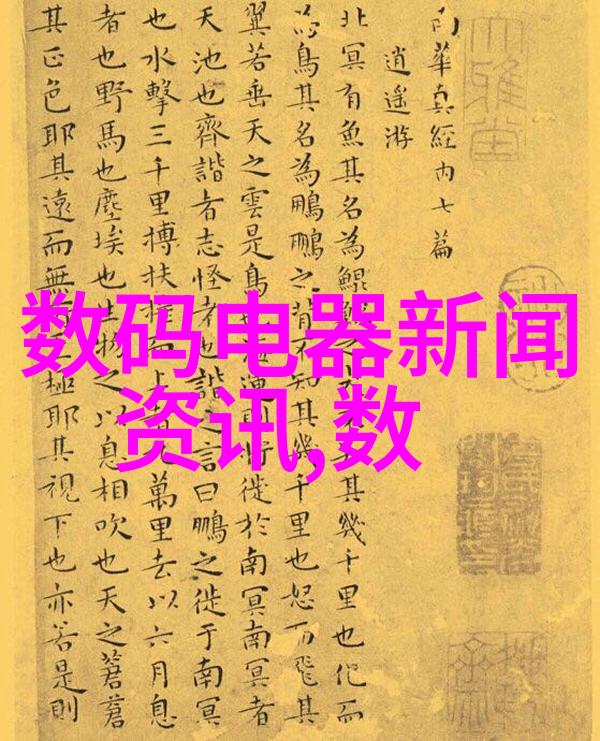 南華真經内七篇
逍遥游
北冥有魚其名為鯤鯤之大不知其幾千里也化而
為鳥其名為鵬鵬之背不知其幾千里也怒而飛其
翼若垂天之雲是鳥也海運則將徙於南冥南冥者
天池也齊諧者志怪者也諧之言曰鵬之徙于南冥
也水擊三千里搏扶摇而上者九萬里去以六月息
者也野馬也塵埃也生物之以息相吹也天之蒼蒼
其正色耶其遠而無所至極耶其視下也亦若是則
数码电器新闻
资讯,数